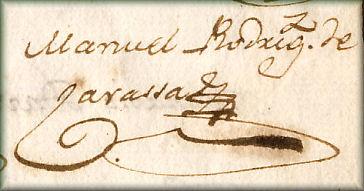 Manuel Rodrig.z de
Sarassa